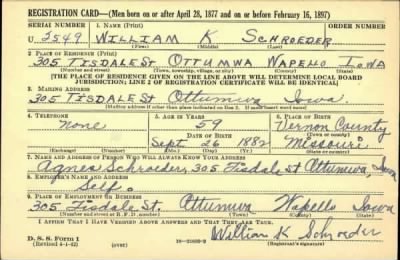 REGISTRATION CARD—(Men born on or after April 28, 1877 and on or before February 16, 1897)
SERIAL NUMBER 1. NAME (Print)
U 2549 WILLIAM K SCHROEDER
(First) (Middle) (Last)
2. PLACE OF RESIDENCE (Print)
305 TISDALE ST OTTUMWA WAPELLO IOWA
(Number and street) (Town, township, village, or city) (County) (State)
[THE PLACE OF RESIDENCE GIVEN ON THE LINE ABOVE WILL DETERMINE LOCAL BOARD
JURISDICTION; LINE 2 OF REGISTRATION CERTIFICATE WILL BE IDENTICAL]
3. MAILING ADDRESS
305 TISDALE ST Ottumwa Iowa.
[Mailing address if other than place indicated on line 2. If same insert word same]
4. TELEPHONE 5. AGE IN YEARS 6. PLACE OF BIRTH
None 59 Vernon County
DATE OF BIRTH (Town or county)
Sept. 26 1882 Missouri
(Exchange) (Number) (Mo.) (Day) (Yr.) (State or country)
7. NAME AND ADDRESS OF PERSON WHO WILL ALWAYS KNOW YOUR ADDRESS
Agnes Schroeder, 305 Tisdale St Ottumwa, Iowa
8. EMPLOYER'S NAME AND ADDRESS
Self.
9. PLACE OF EMPLOYMENT OR BUSINESS
305 Tisdale St. Ottumwa Wapello Iowa
(Number and street or R. F. D. number) (Town) (County) (State)
I AFFIRM THAT I HAVE VERIFIED ABOVE ANSWERS AND THAT THEY ARE TRUE.
William K Schroeder
D. S. S. FORM 1
(Revised 4-1-42) (over) (Registrant's signature)